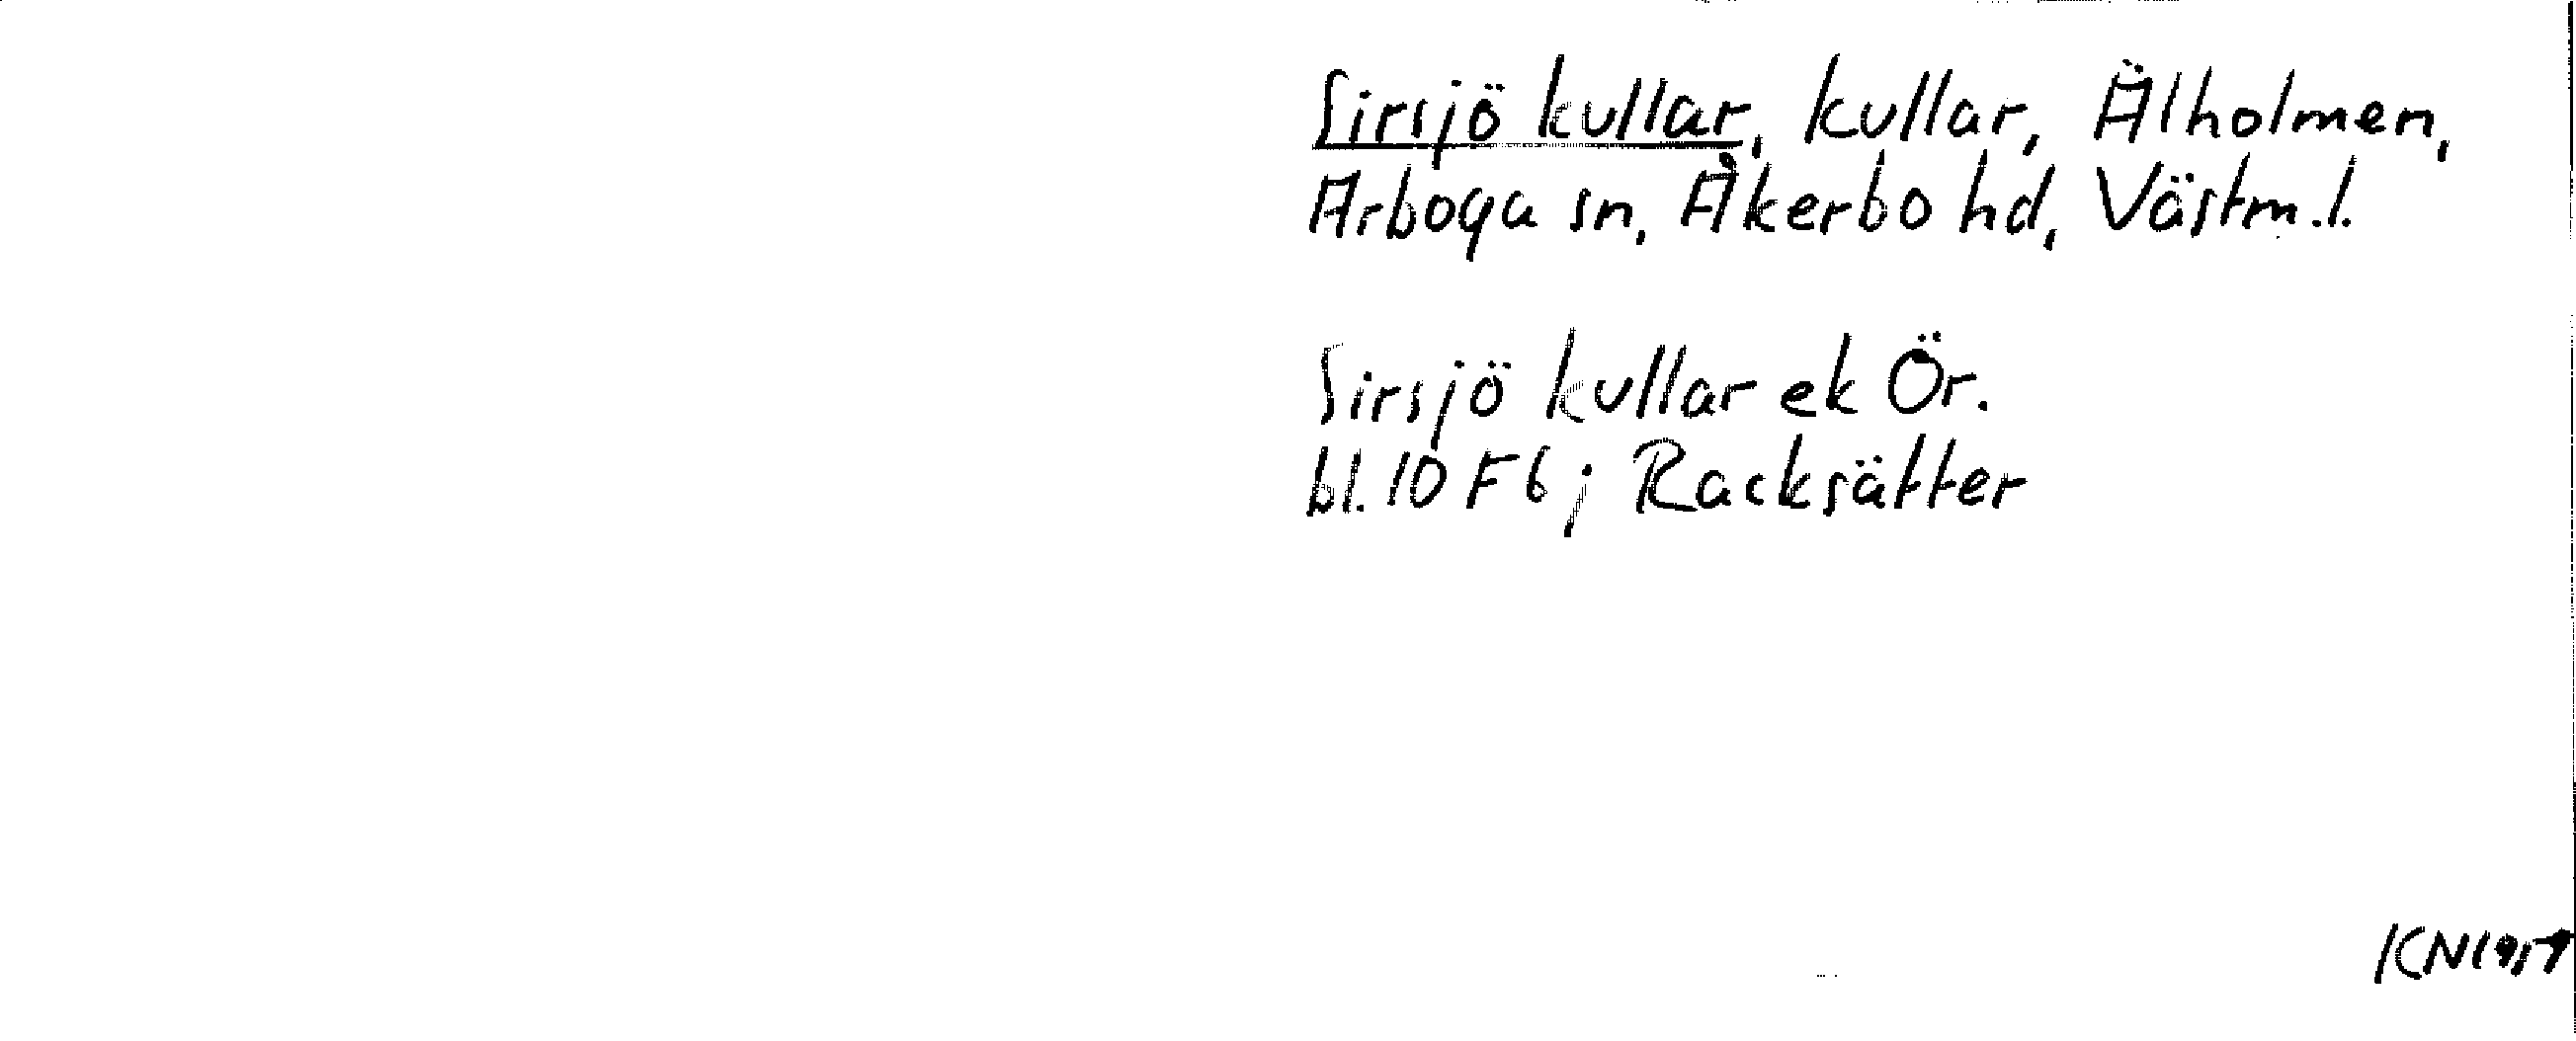 Sirsjö kullar, kullar, Älholmen,
Arboga sn, Åkerbo hd, Västm.l.
Sirsjö kullar ek Ör.
bl. 10 F 6 ; Racksätter
KN